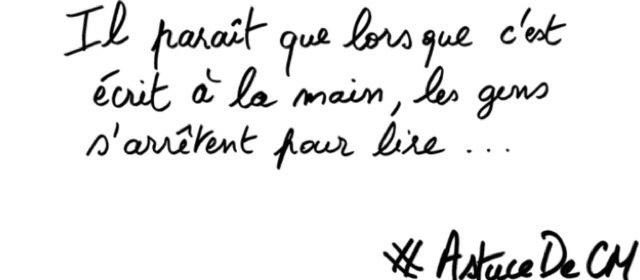 Il paraît que lorsque c'est
écrit à la main, les gens
s'arrêtent pour lire ...
#AstuceDeCM